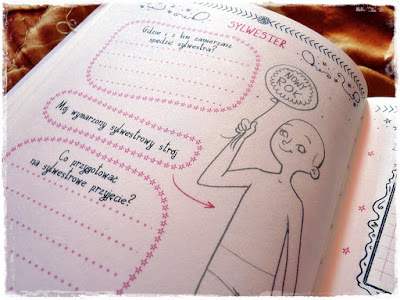 SYLWESTER
Gdzie i z kim zamierzasz
spędzić sylwestra?
NOWY
ROK
Mój wymarzony sylwestrowy strój
Co przygotować
na sylwestrowe przyjęcie?